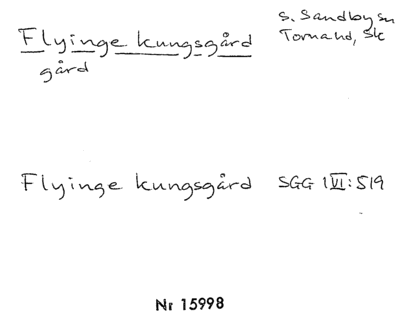 Flyinge kungsgård
gård
S. Sandby sn
Torna hd, Sk
Flyinge kungsgård SGG 1 VI: 519
Nr 15998